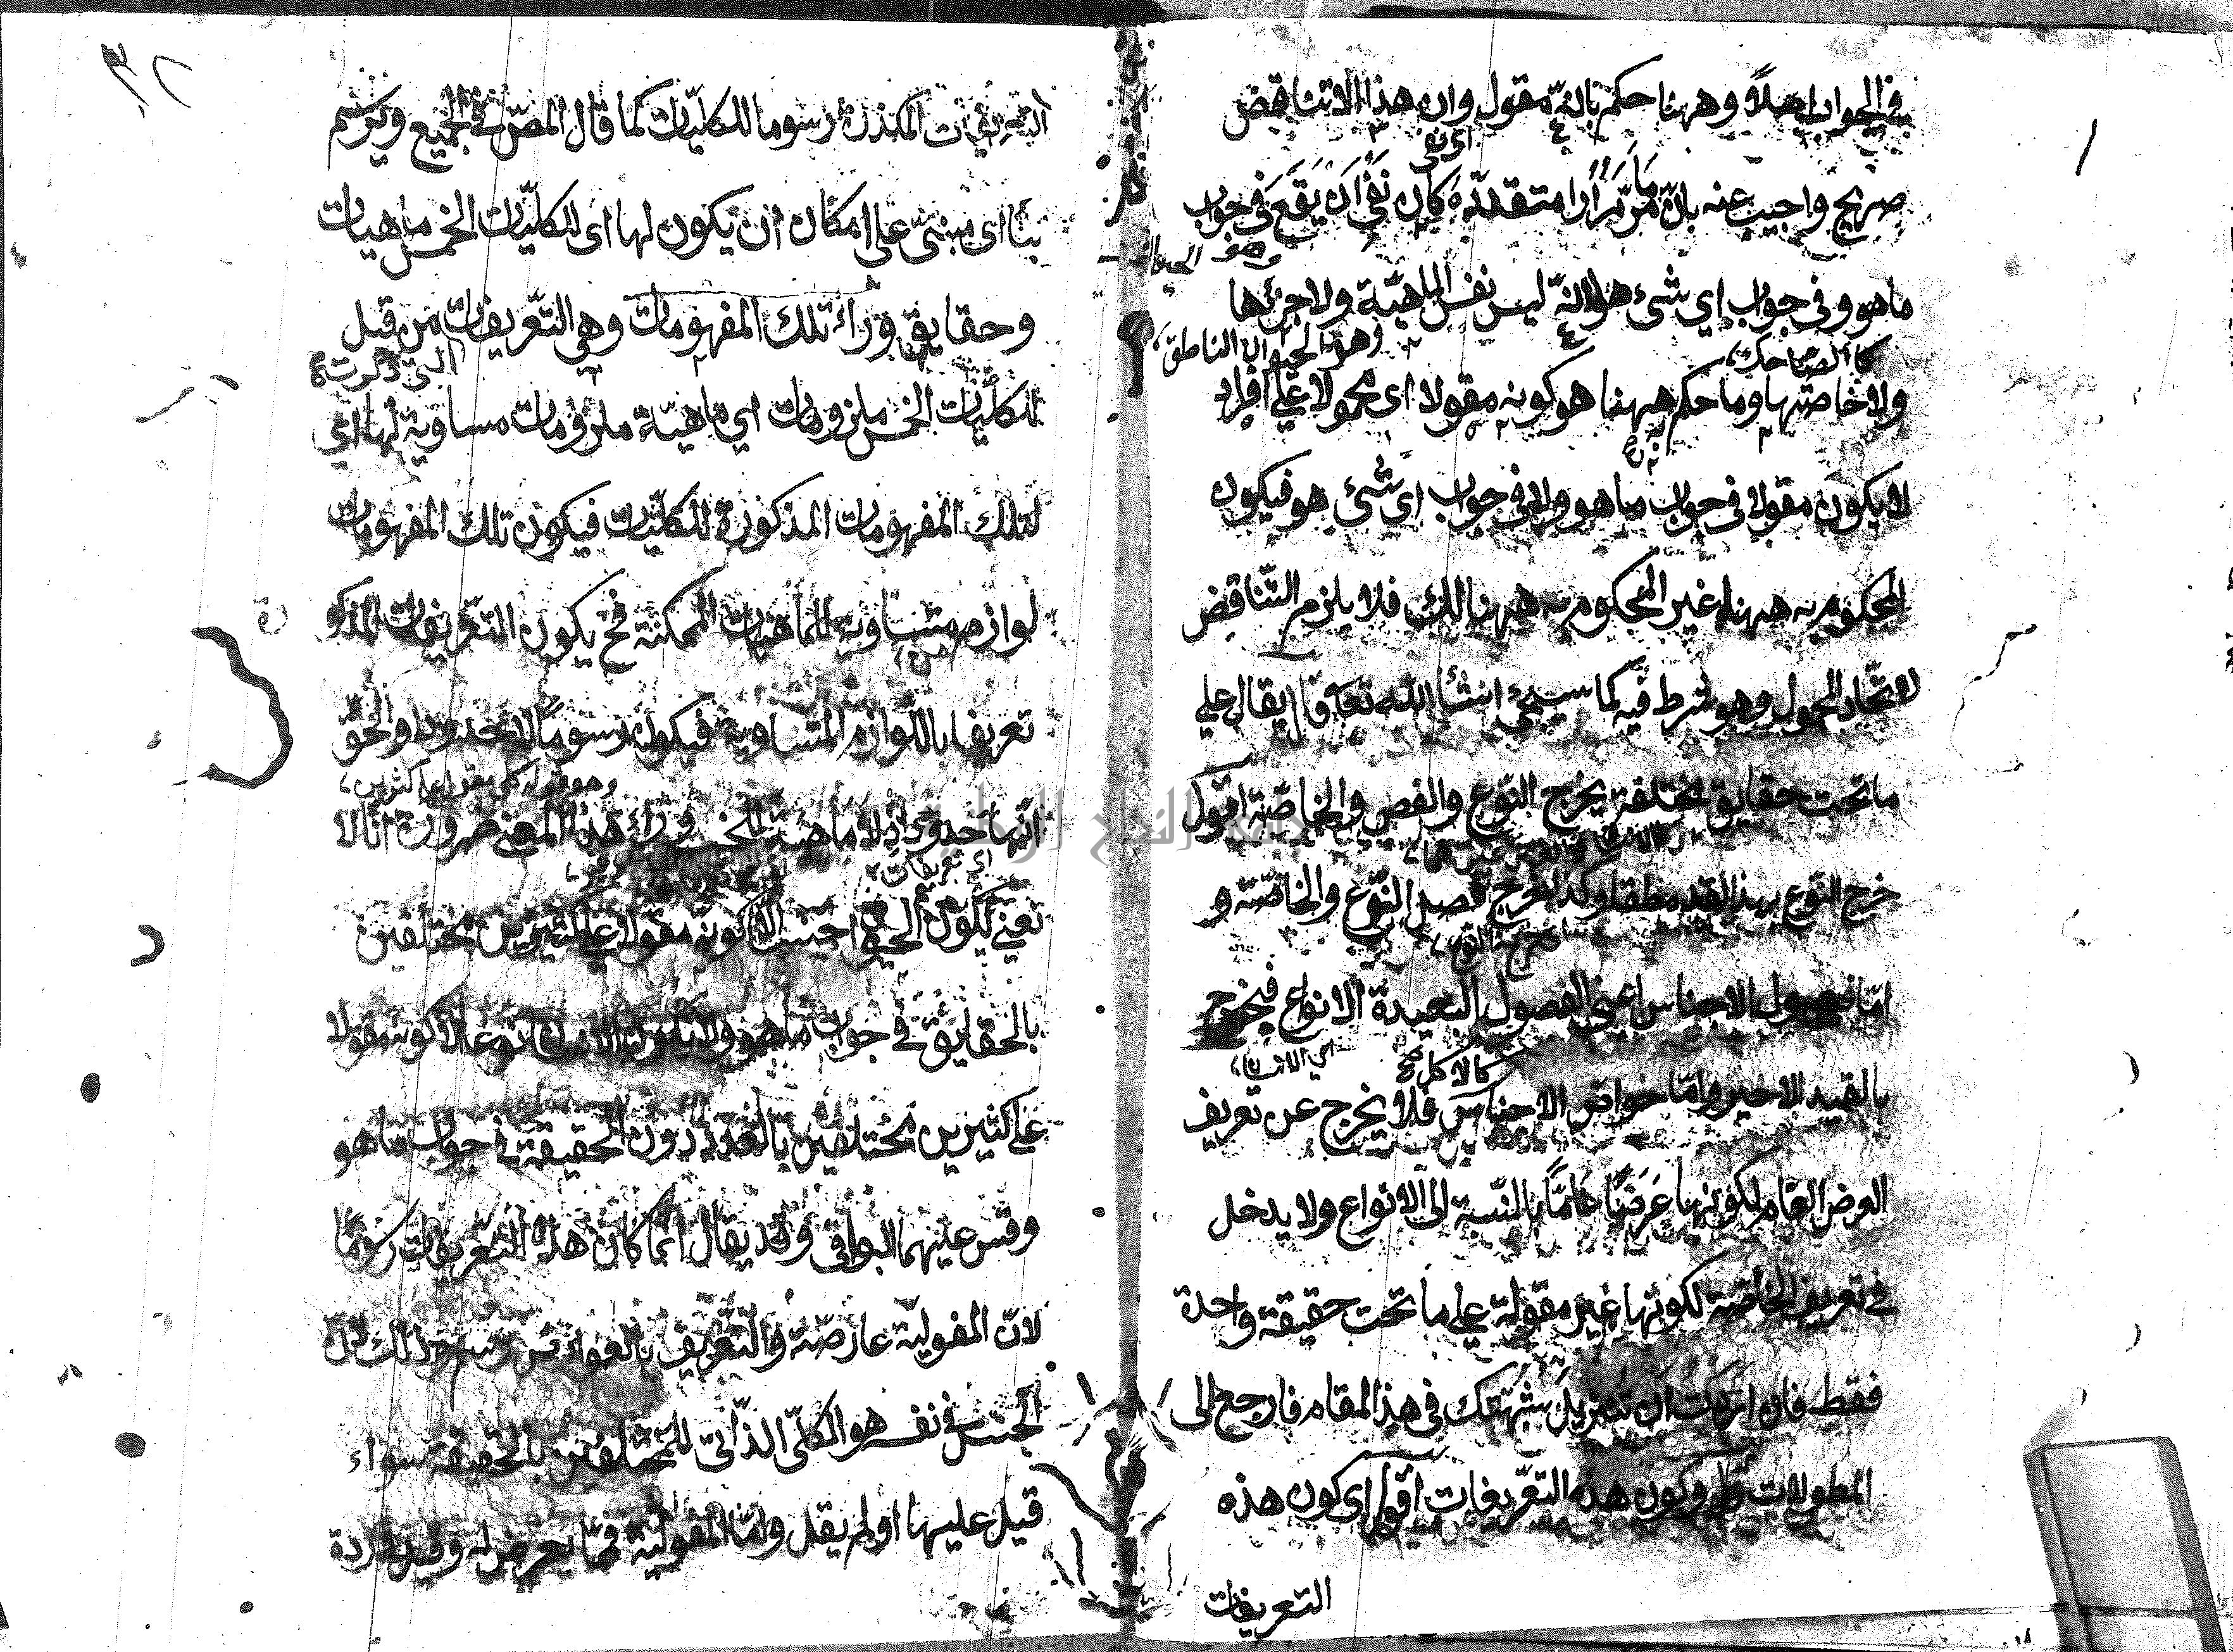 في الجواب اصلا وههنا حكم بانه مقول وان هذا الا تناقض
اى نفى
صريح واجيب عنه بان ما مر مرارا متقدمة كان نفى ان يقع فى جواب
ما هو وفى جواب اي شئ هو لانه ليس نفس الماهية ولا جزئها
وهو الحيوان الناطق
كالضاحك
ولا خاصتها وما حكم ههنا هو كونه مقولا اى محمولا على افراد
لا يكون مقولا فى جواب ما هو ولا فى جواب اى شئ هو فيكون
المحكوم به ههنا غير المحكوم به ههنالك فلا يلزم التناقض
لاتحاد المحمول وهو شرط فيه كما سيجئ انشأ الله تعا قال يقال على
ما تحت حقايق مختلفة يخرج النوع والفصل والخاصة اقول
خرج النوع بهذا القيد مطلقا وكذا خرج فصل النوع والخاصة و
اما فصول الاجناس اعنى الفصول البعيدة الانواع فيخرج
كالاكل
بالقيد الاخير واما خواص الاجناس فلا يخرج عن تعريف
العرض العام لكونها عرضا عاما بالنسبة الى الانواع ولا يدخل
فى تعريف الخاصة لكونها غير مقولة على ما تحت حقيقة واحدة
فقط فان اردت ان تزيل شبهتك فى هذا المقام فارجع الى
المطولات وكون هذه التعريفات اقول اى كون هذه
التعريفات
٣٢
التعريفات المذكورة رسوما للكليات كما قال المص فى الجميع ويرسم
بنأ اى مبنى على امكان ان يكون لها اى للكليات الخمس ماهيات
وحقايق ورائ تلك المفهومات وهى التعريفات من قبل
التى ذكرت
للكليات الخمس ملزومات اي ماهية ملزومات مساوية لها اعنى
لتلك المفهومات المذكورة للكليات فيكون تلك المفهومات
لوازم متساوية للماهيات الممكنة فح يكون التعريفات المذكو
تعريفا باللوازم المتساوية فيكون رسوما لا حدودا والحق
وهو قوله كلى مقول على كثيرين
انها حدود اذ لا ماهية للجنس ورائ هذا المعنى ضرورة انا لا
اى تعريفات
نعنى بكون الحيوان جنسا الا كونه مقولا على كثيرين مختلفين
بالحقايق فى جواب ما هو ولا بكون الانسان نوعا الا كونه مقولا
على كثيرين مختلفين بالعدد دون الحقيقة فى جواب ما هو
وقس عليهما البواقى وقد يقال انما كان هذه التعريفات رسوما
لان المقولية عارضة والتعريف بالعوارض رسم وذلك لان
الجنس فى نفسه هو الكلى الذاتى للمختلفين بالحقيقة سواء
قيل عليها او لم يقل واما المقولية فمما يعرض له وقيل فى رده